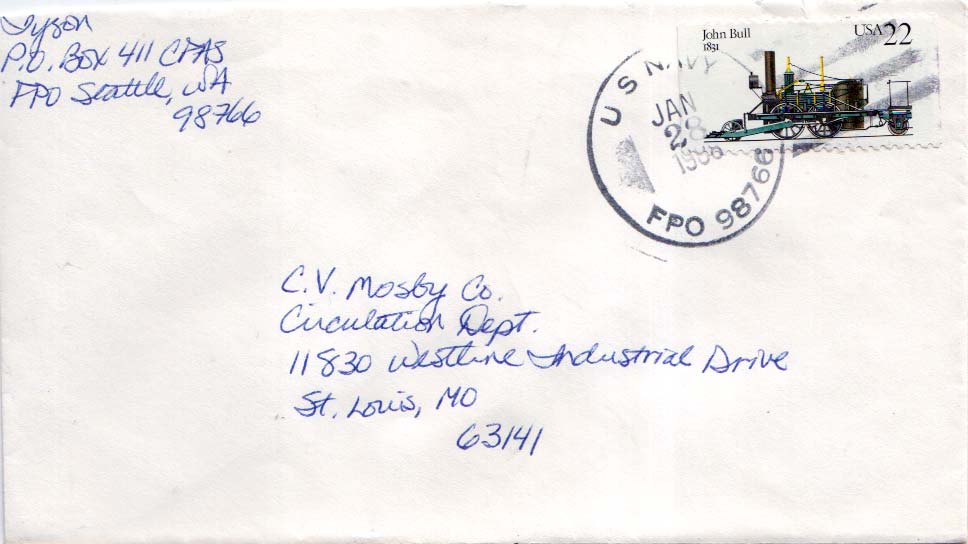 Tyson
P.O. Box 411 CPAS
FPO Seattle, WA
98766
John Bull
1831
USA 22
U S NAVY
JAN
28
1988
FPO 98766
C.V. Mosby Co.
Circulation Dept.
11830 Westline Industrial Drive
St. Louis, MO
63141